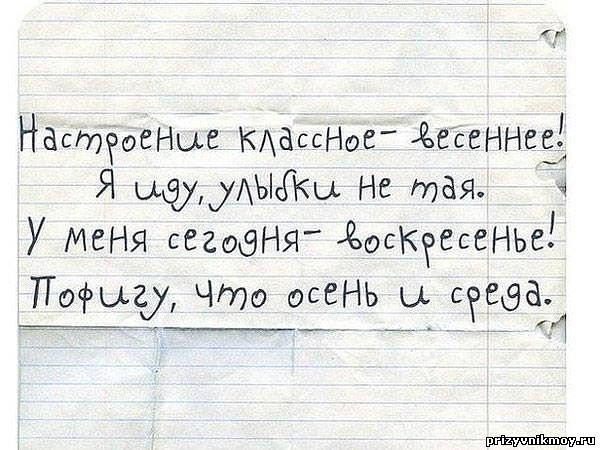 Настроение классное- весеннее!
Я иду, улыбки не тая.
У меня сегодня- воскресенье!
Пофигу, что осень и среда.
prizyvnikmoy.ru